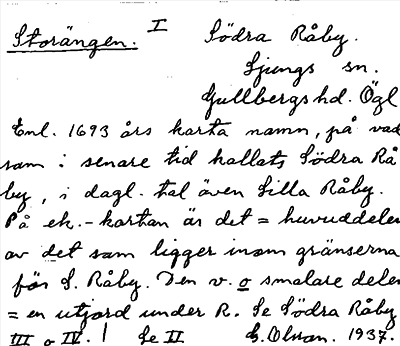 Storängen. I Södra Råby.
Ljungs sn.
Gullbergs hd. Ögl
Enl. 1693 års karta namn, på vad
som i senare tid kallats Södra Rå
by, i dagl. tal även Lilla Råby.
På ek.-kartan är det = huvuddelen
av det som ligger inom gränserna
för S. Råby. Den v. o smalare delen
= en utjord under R. Se Södra Råby
III o IV. | Se II E. Olson. 1937.